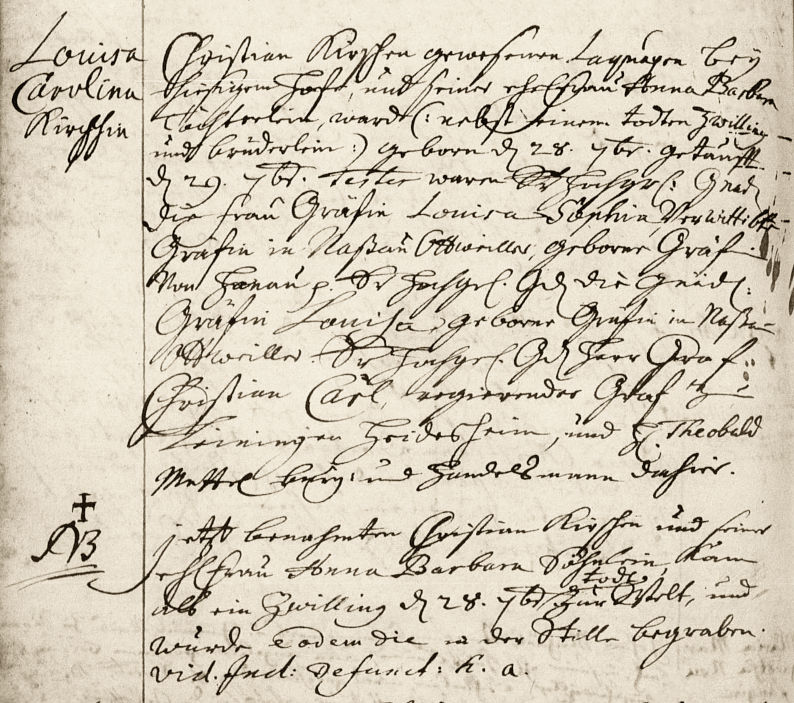 Louisa
Carolina
Kirschin
Christian Kirschen gewesenen Laquayen bey
hiesigem Hofe, und seiner ehelfrau Anna Barbara
Töchterlein, ward (: nebst einem todten Zwilling
und brüderlein :) geborn d 28. 7br. getaufft
d 29. 7br. testes waren Hochgrf: Gnad
die frau Gräfin Louisa Sophia Verwittibte
Gräfin in Naßau Ottweiller, geborne Gräf
von Hanau p. Hochgrl. Gd die Gnäd:
Gräfin Louisa, geborne Gräfin in Naßau
Ottweiller. Hochgrl. Gd Herr Graf
Christian Carl, regierender Graf zu
Leiningen Heidesheim, und H. Theobald
Mettel burg: und Handelsmann dahier.
NB
jetzt benahmten Christian Kirschen und seiner
ehlfrau Anna Barbara Söhnlein, kam
als ein Zwilling d 28. 7br todt zur Welt, und
wurde eodem die in der Stille begraben.
vid. Ind: defunct: K. a.